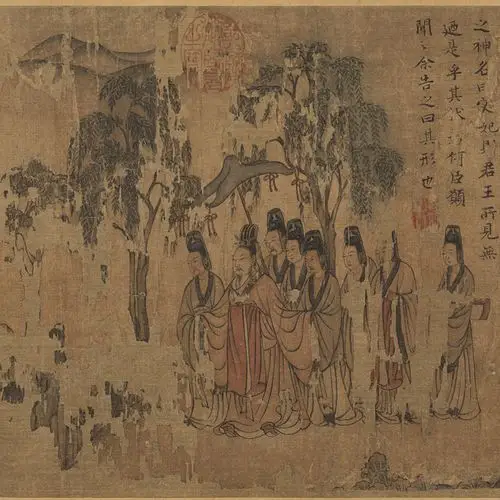 之神名曰宓妃則君王所見無
迺是乎其狀若何臣願
聞之余告之曰其形也